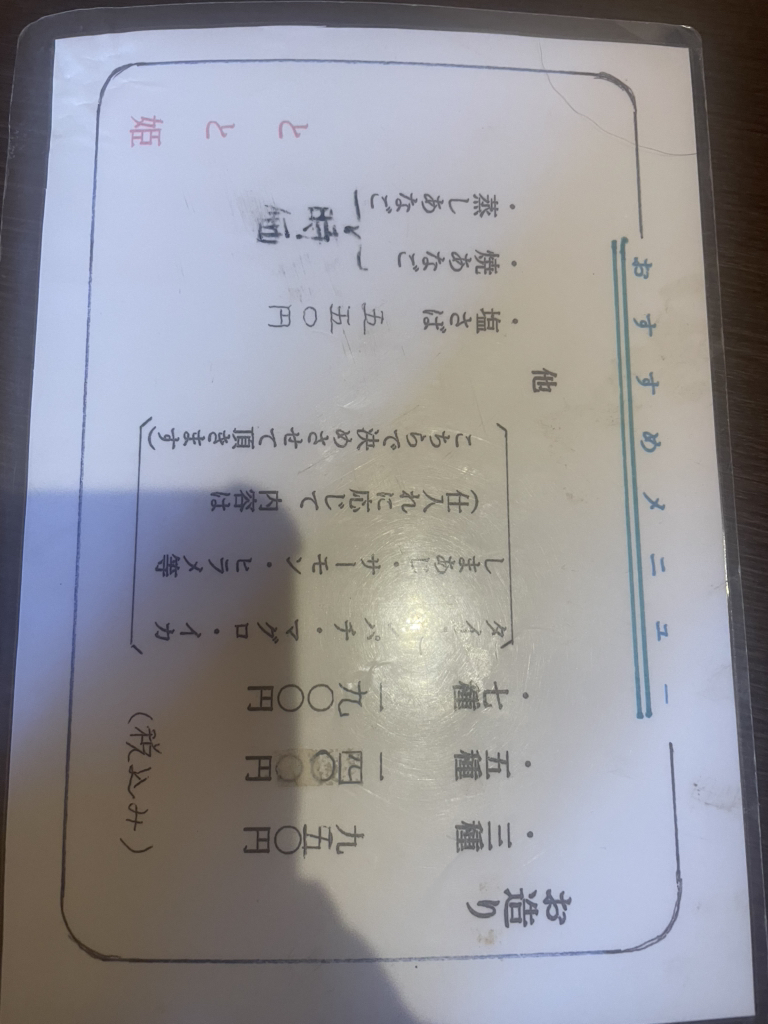 おすすめメニュー
お造り
・三種 九五〇円
・五種 一四〇〇円
・七種 一九〇〇円
(税込み)
タイ・マグロ・イカ
しまあじ・サーモン・ヒラメ等
(仕入れに応じて 内容は
こちらで決めさせて頂きます)
他
・塩さば 五五〇円
・焼あなご
・蒸しあなご
時価
とと姫